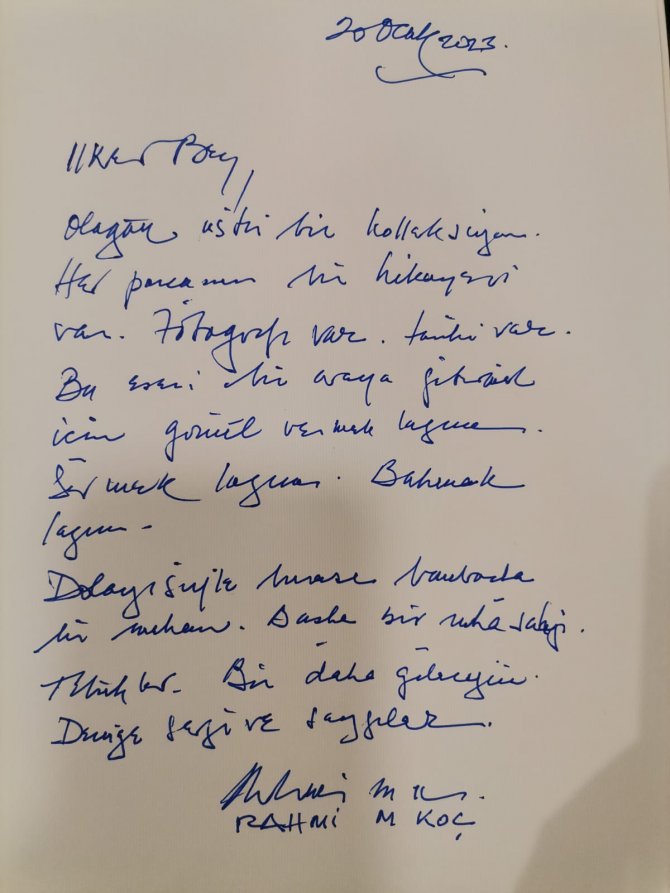 20 Ocak 2023.
İlker Bey,
Olağan üstü bir kolleksiyon.
Her parçanın bir hikayesi
var. Fotoğrafı var. tarihi var.
Bu eseri bir araya getirmek
için gönül vermek lazım.
Sevmek lazım. Bakmak
lazım.
Dolayısiyle burası bambaşka
bir mekan. Başka bir ruha sahip.
Tebrikler. Bir daha geleceğim.
Denize sevgi ve saygılar.
RAHMİ M KOÇ